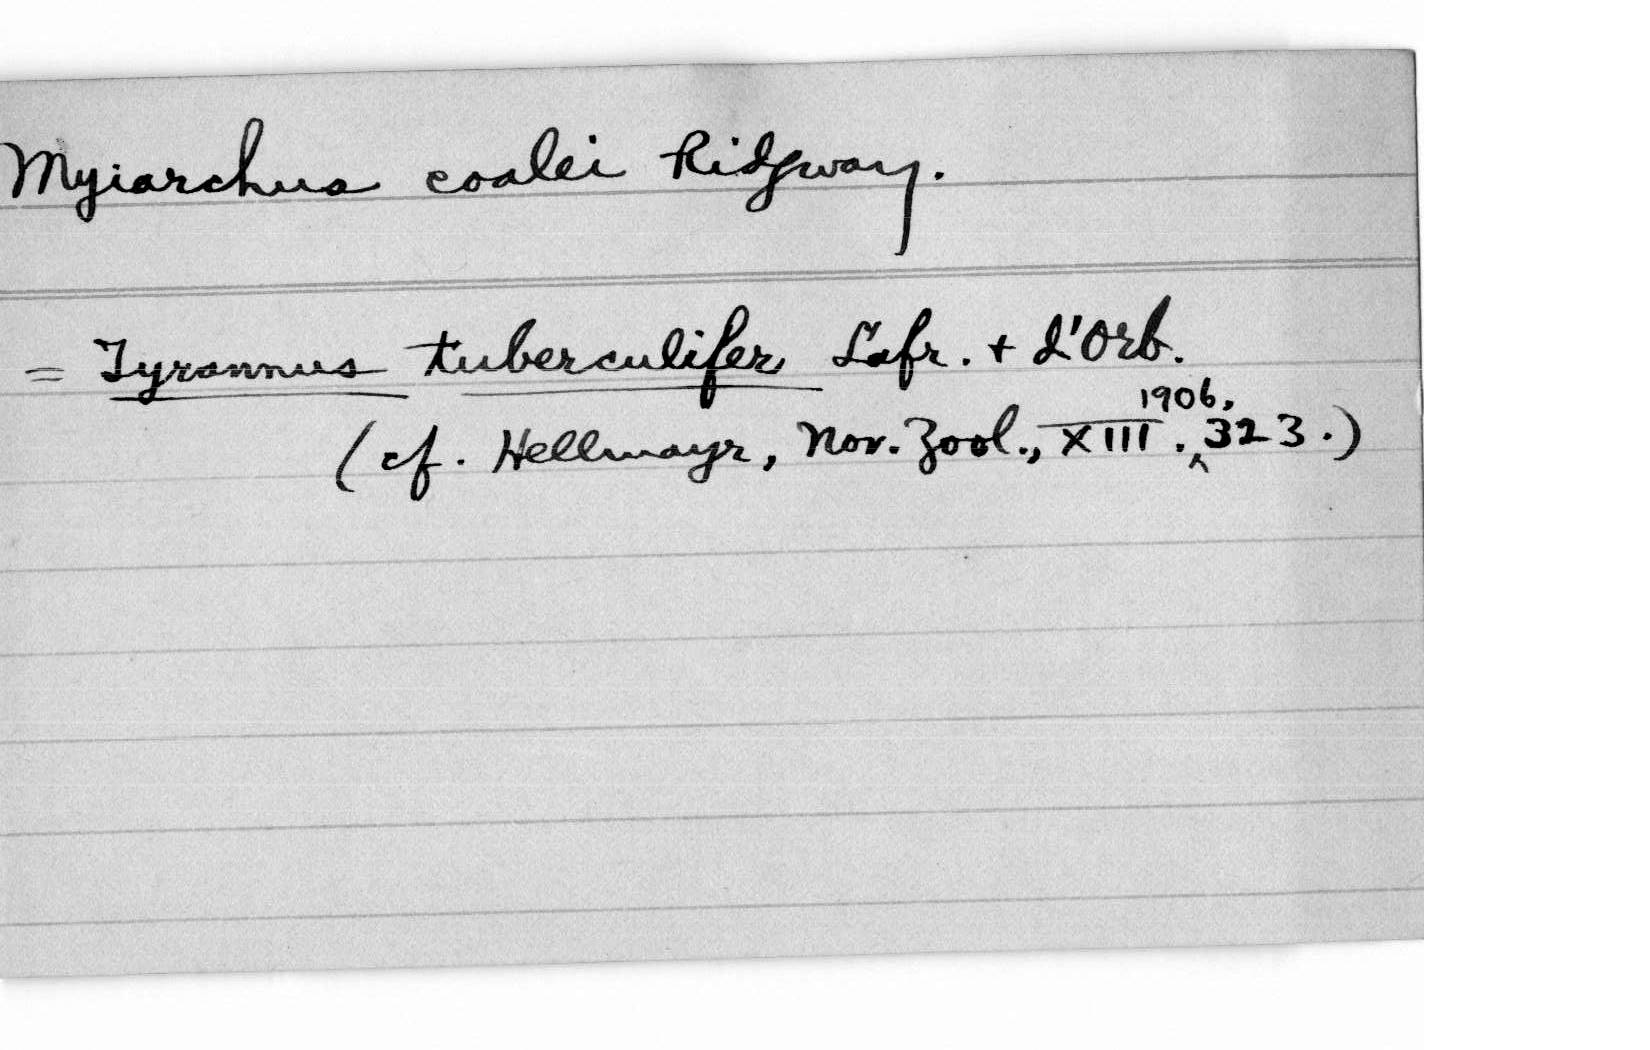 Myiarchus coalei Ridgway.
= Tyrannus tuberculifer Lafr. + d'Orb.
(cf. Hellmayr, Nov. Zool., XIII. 1906, 323.)